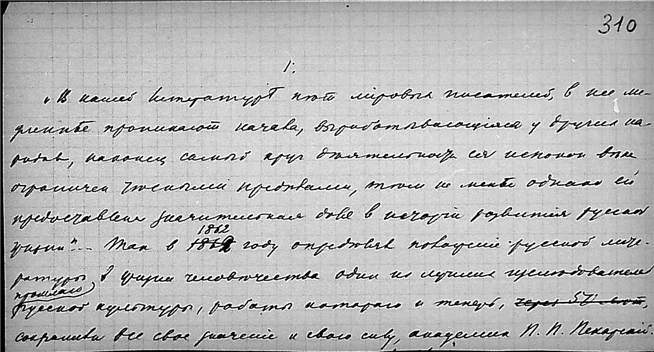 310
1.
„В нашей литературѣ нѣт мировых писателей, в нее ме-
дленнѣе проникают начала, вырабатывающіяся у других на-
родов, наконец самый круг дѣятельности ея испокон вѣка
ограничен тѣсными предѣлами, тѣм не менѣе однако ей
предоставлена значительная доля в исторіи развитія русской
жизни"... Так в 1862 году опредѣлял положеніе русской лите-
ратуры в жизни человѣчества один из лучших изслѣдователей
прошлаго
русской культуры, работы котораго и теперь, через 50 лѣт,
сохранили все свое значеніе и свою силу, академик П. П. Пекарскій.